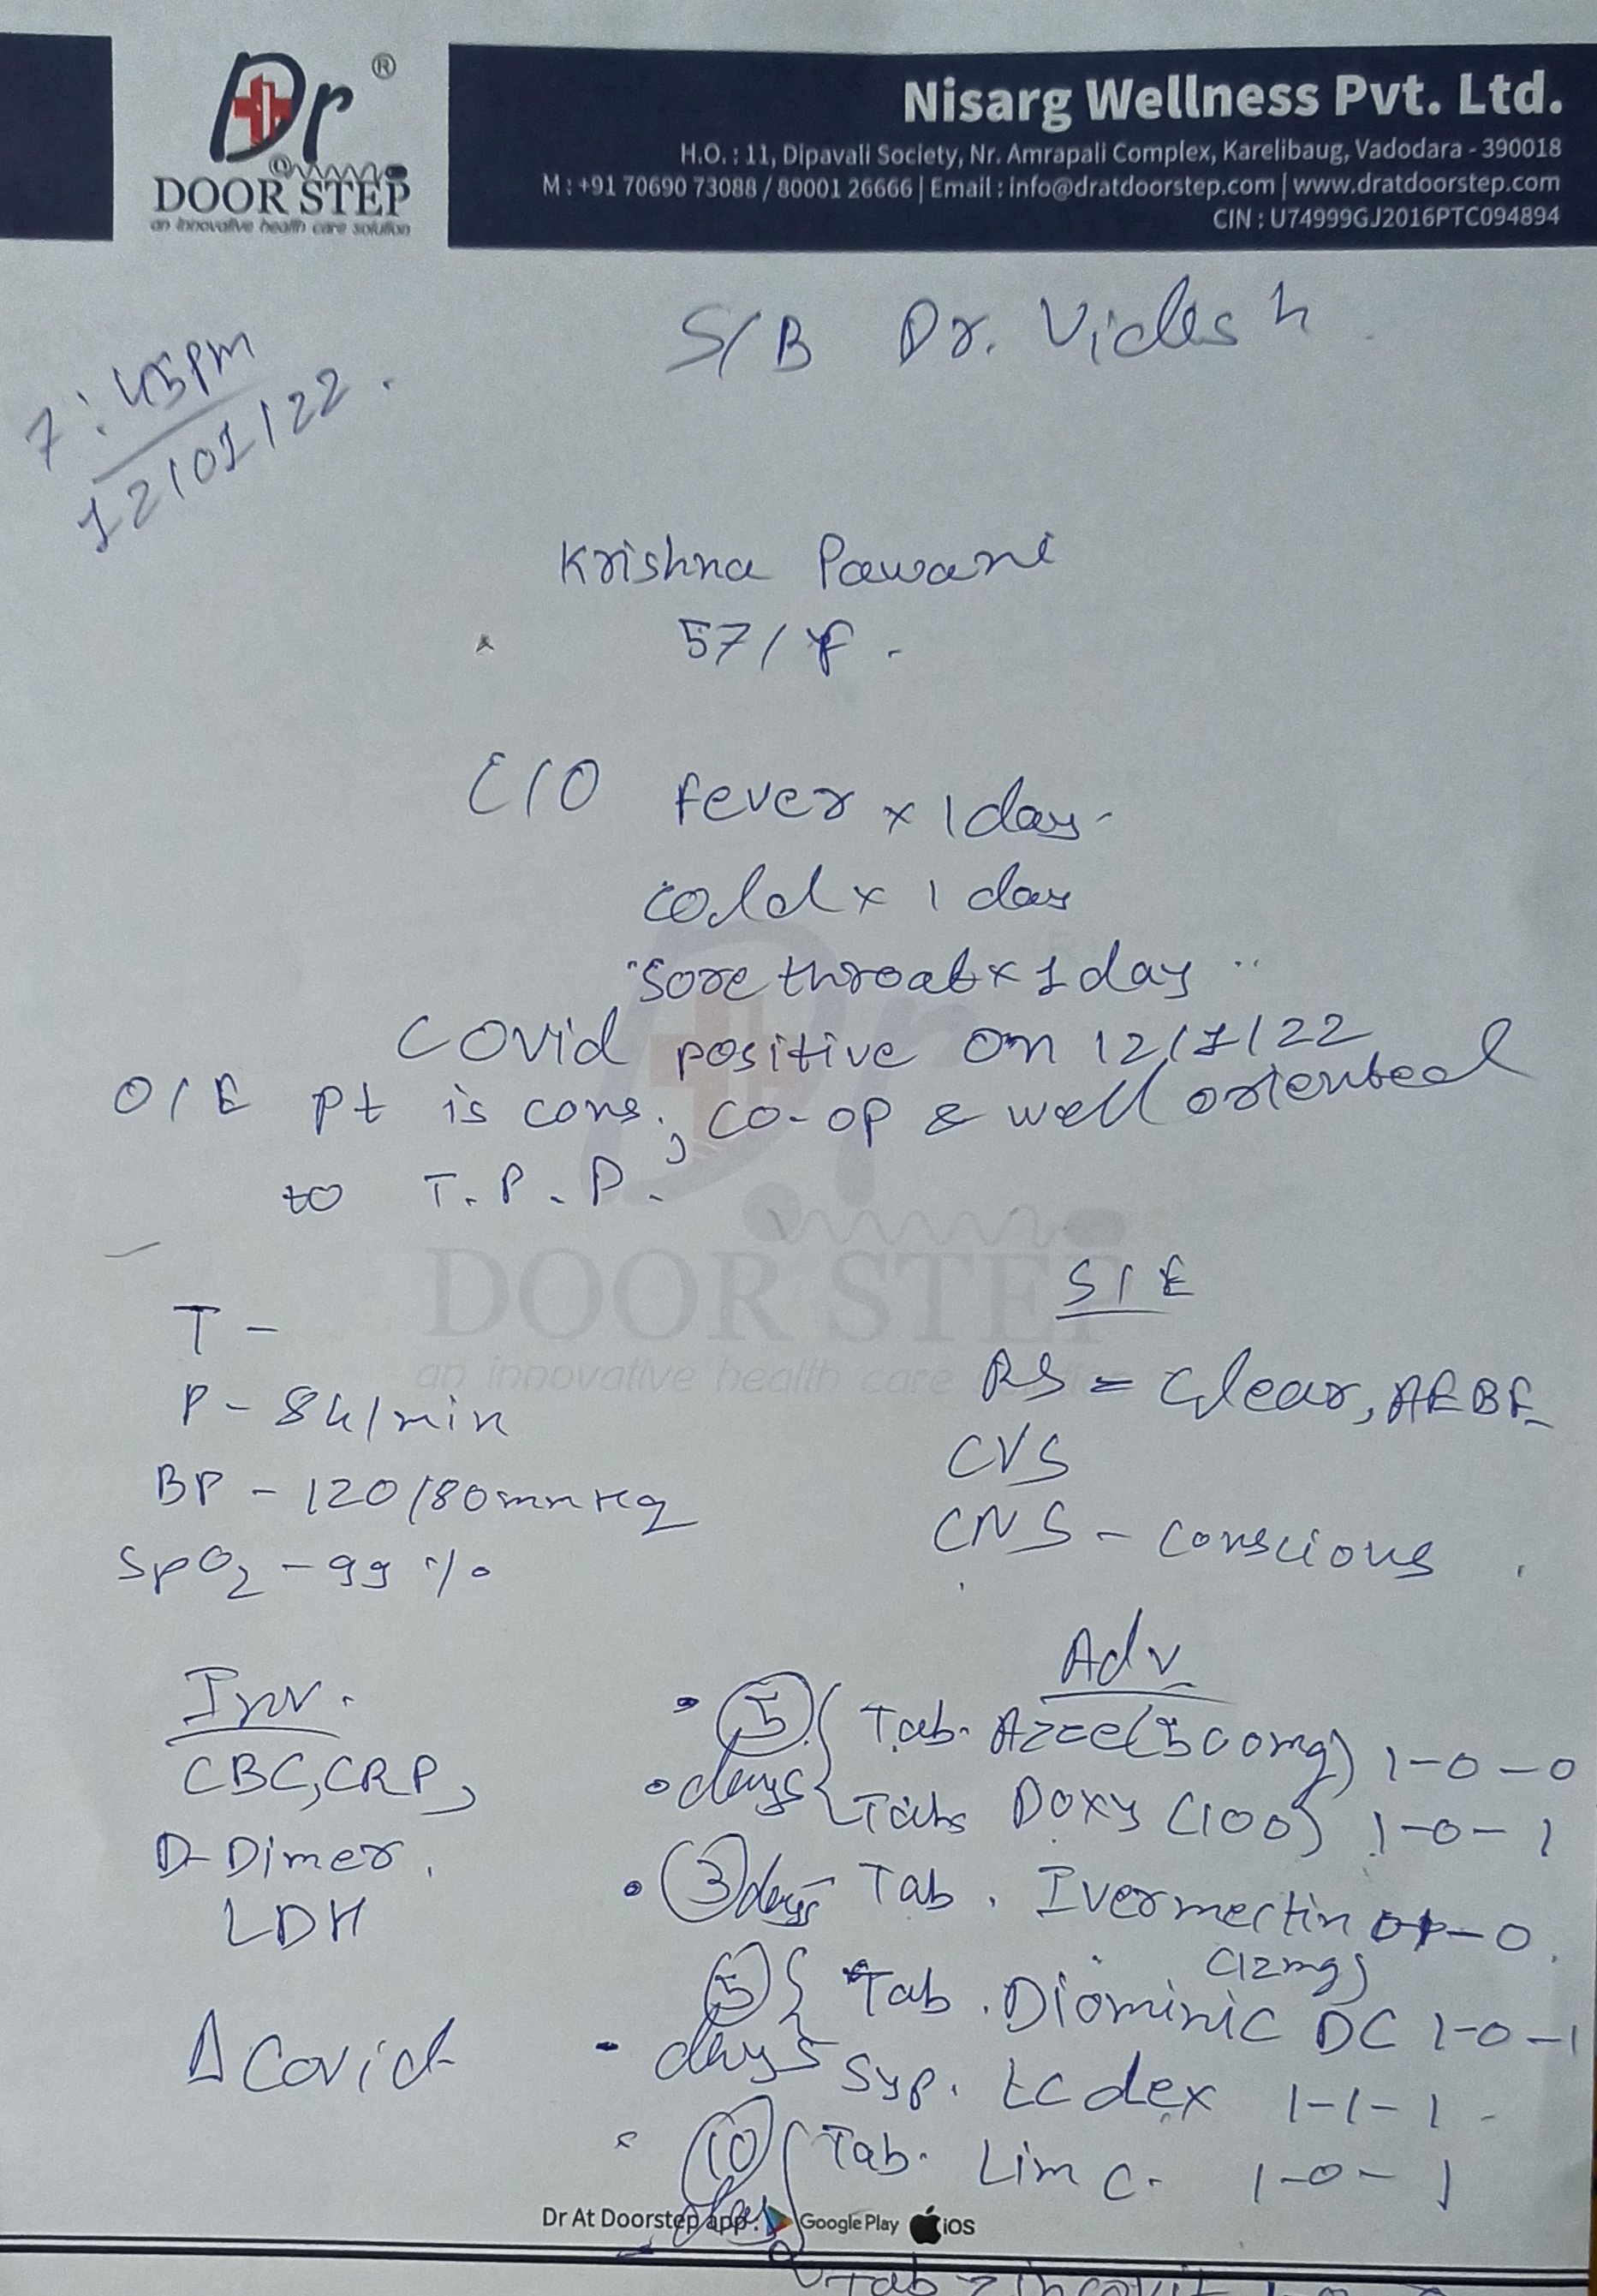 Dr ®
DOOR STEP
an innovative health care solution
Nisarg Wellness Pvt. Ltd.
H.O. : 11, Dipavali Society, Nr. Amrapali Complex, Karelibaug, Vadodara - 390018
M : +91 70690 73088 / 80001 26666 | Email : info@dratdoorstep.com | www.dratdoorstep.com
CIN : U74999GJ2016PTC094894
S/B Dr. Videsh
7:45pm
12/01/22.
Krishna Pawani
57/F.
C/O fever x 1 day
cold x 1 day
Sore throat x 1 day
Covid positive on 12/1/22
O/E pt is cons., co-op & well oriented
to T.P.P.
DOOR STEP
an innovative health care
T -
P - 84/min
BP - 120/80mmHg
SpO2 - 99 %
S/E
RS = Clear, AEBE
CVS
CNS - Conscious
Inv.
CBC, CRP,
D-Dimer.
LDH
Δ Covid
Adv
5 days { Tab. Azee (500mg) 1-0-0
Tabs Doxy (100) 1-0-1
3 days Tab. Ivermectin 0-1-0.
(12mg)
5 days { Tab. Diominic DC 1-0-1
Syp. tcdex 1-1-1
10 days { Tab. Lim C. 1-0-1
Dr At Doorstep app : Google Play iOS
Tab Zincovit